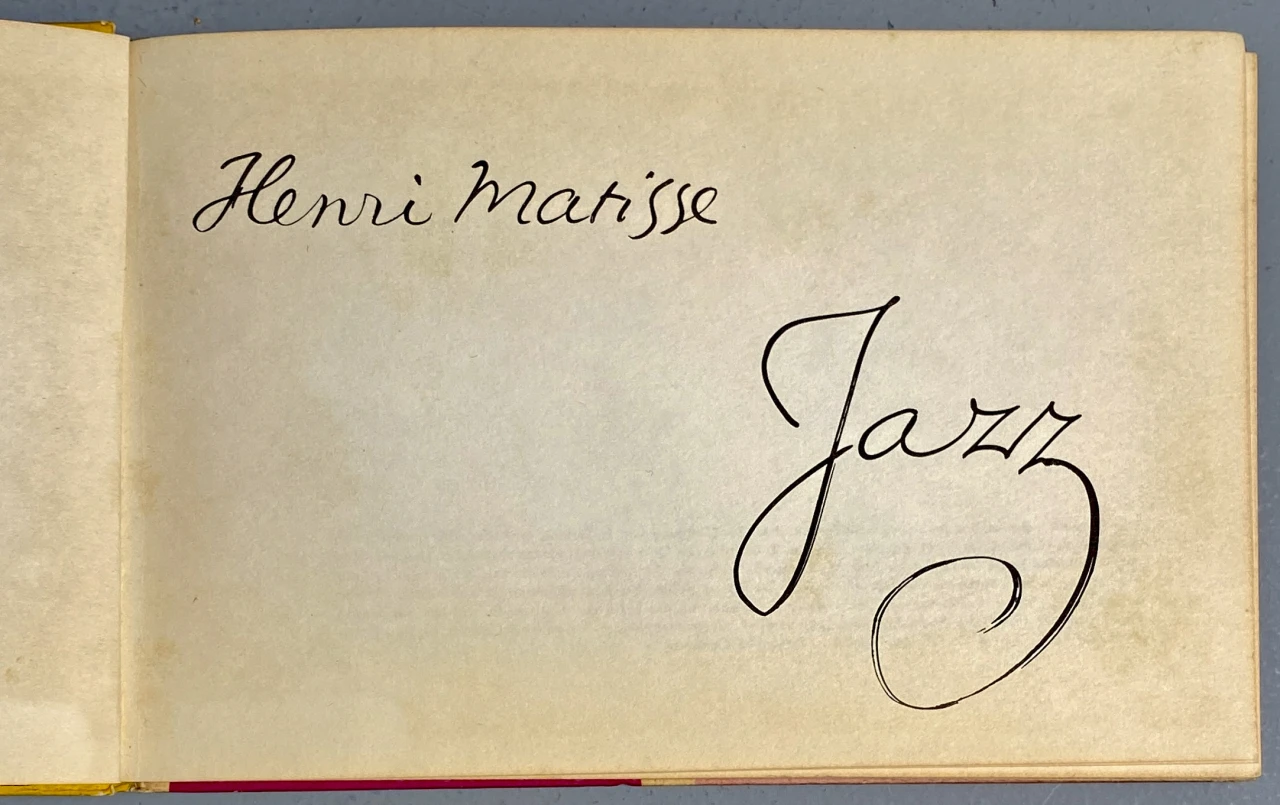 Henri Matisse
Jazz